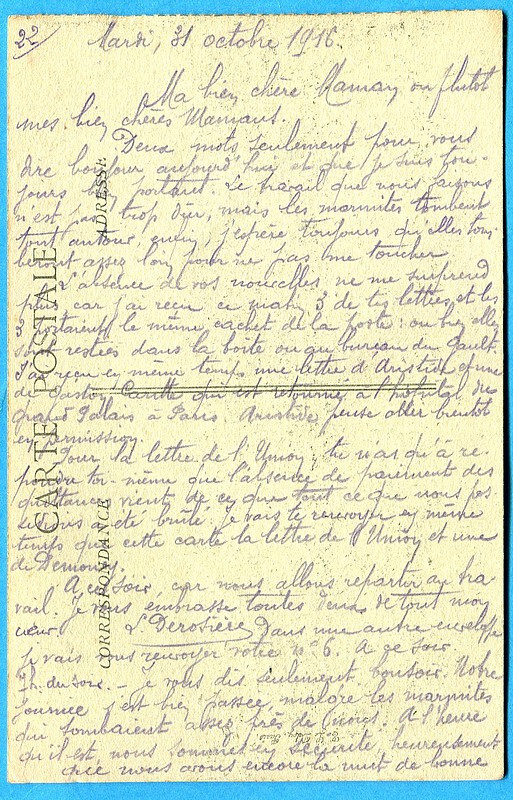 22
Mardi, 31 octobre 1916.
Ma bien chère Maman ou plutôt
mes bien chères Mamans.
Deux mots seulement pour vous
dire bonjour aujourd'hui et que je suis tou-
jours bien portant. Le travail que nous faisons
n'est pas trop dur, mais les marmites tombent
tout autour, enfin, j'espère toujours qu'elles tom-
beront assez loin pour ne pas me toucher.
L'absence de vos nouvelles ne me surprend
plus car j'ai reçu ce matin 3 de tes lettres, et les
3 portaient le même cachet de la poste : ou bien elles
sont restées dans la boîte ou au bureau du Gault.
J'ai reçu en même temps une lettre d'Aristide et une
de Gaston qui est retourné à l'hôpital du
Grand Palais à Paris. Aristide pense aller bientôt
en permission.
Pour la lettre de l'Union, tu n'as qu'à ré-
pondre toi-même que l'absence de paiement des
quittances vient de ce que tout ce que nous pos
sédions a été brûlé. Je vais te renvoyer en même
temps que cette carte la lettre de l'Union et une
de
A ce soir, car nous allons repartir au tra-
vail. Je vous embrasse toutes deux de tout mon
cœur. L Derosière Dans une autre enveloppe
je vais vous renvoyer votre n° 6. A ce soir.
7h. du soir. - Je vous dis seulement bonsoir. Notre
journée s'est bien passée, malgré les marmites
qui tombaient assez près de nous. A l'heure
qu'il est, nous sommes en sécurité, heureusement
que nous avons encore la nuit de bonne
CARTE POSTALE
CORRESPONDANCE
ADRESSE